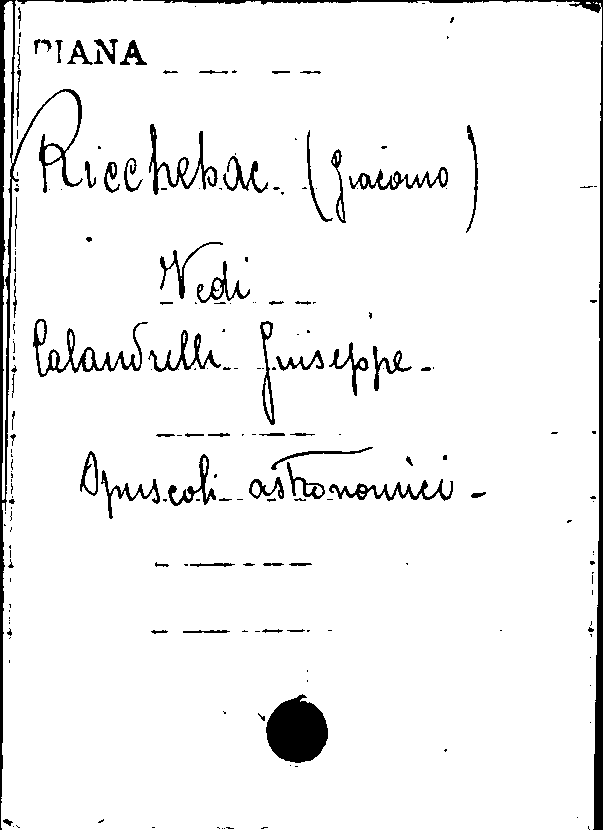 DIANA
Ricchebac. (Giacomo)
Vedi
Calandrelli Giuseppe -
Opuscoli astronomici -